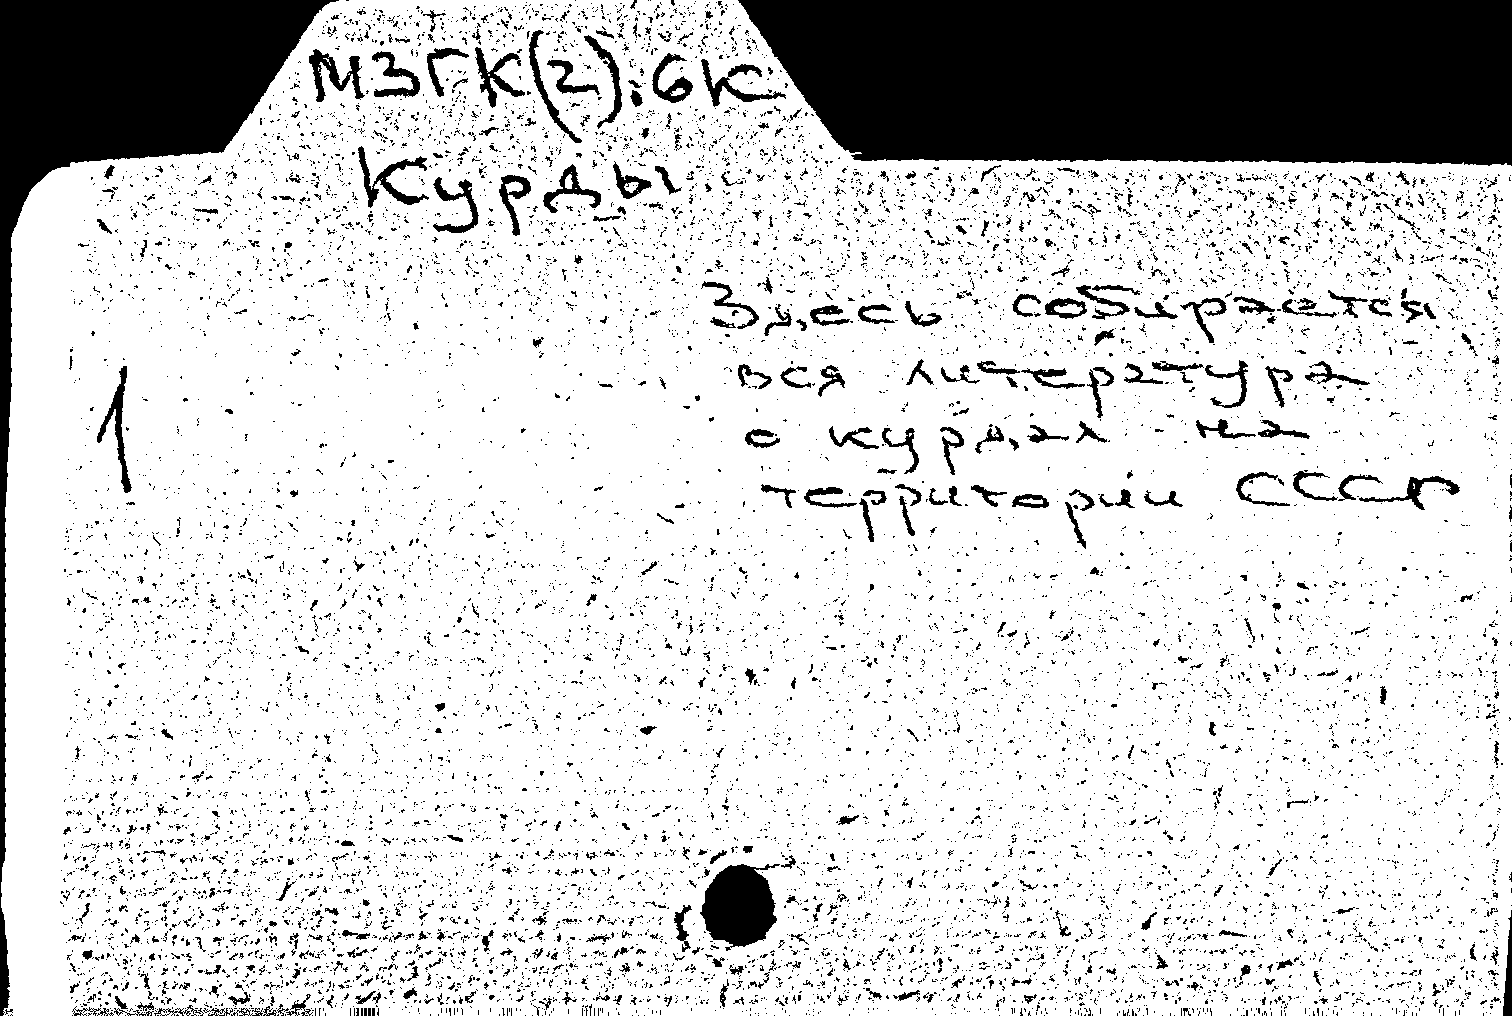 МЗГК(2).6К
Курды
Здесь собирается
вся литература
1
о курдах на
территории СССР